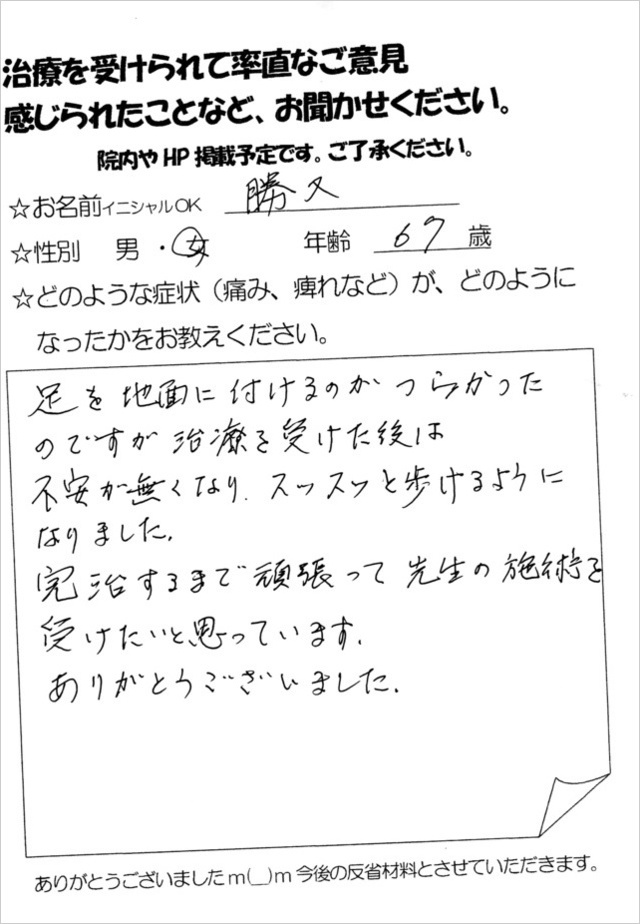 治療を受けられて率直なご意見
感じられたことなど、お聞かせください。
院内やHP掲載予定です。ご了承ください。
☆お名前イニシャルOK 勝又
☆性別 男・女 年齢 67歳
☆どのような症状（痛み、痺れなど）が、どのように
なったかをお教えください。
足を地面に付けるのがつらかった
のですが治療を受けた後は
不安が無くなり、スッスッと歩けるように
なりました。
完治するまで頑張って先生の施術を
受けたいと思っています。
ありがとうございました。
ありがとうございましたm(__)m今後の反省材料とさせていただきます。